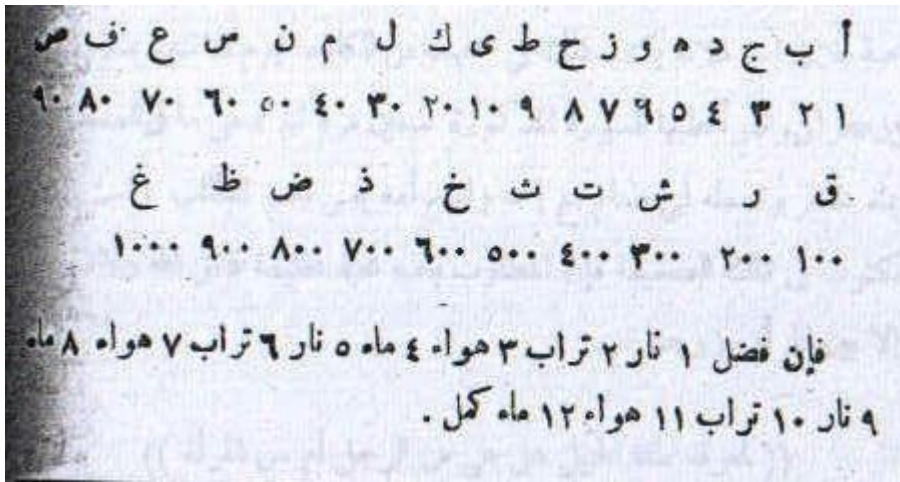 أ ب ج د ه و ز ح ط ى ك ل م ن س ع ف ص
١ ٢ ٣ ٤ ٥ ٦ ٧ ٨ ٩ ١٠ ٢٠ ٣٠ ٤٠ ٥٠ ٦٠ ٧٠ ٨٠ ٩٠
ق ر ش ت ث خ ذ ض ظ غ
١٠٠ ٢٠٠ ٣٠٠ ٤٠٠ ٥٠٠ ٦٠٠ ٧٠٠ ٨٠٠ ٩٠٠ ١٠٠٠
فإن فضل ١ نار ٢ تراب ٣ هواء ٤ ماء ٥ نار ٦ تراب ٧ هواء ٨ ماء
٩ نار ١٠ تراب ١١ هواء ١٢ ماء كمل .